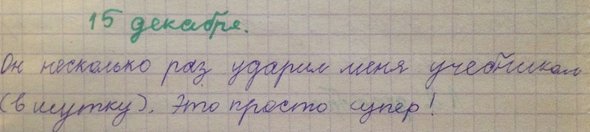 15 декабря.
Он несколько раз ударил меня учебником
(в шутку). Это просто супер!